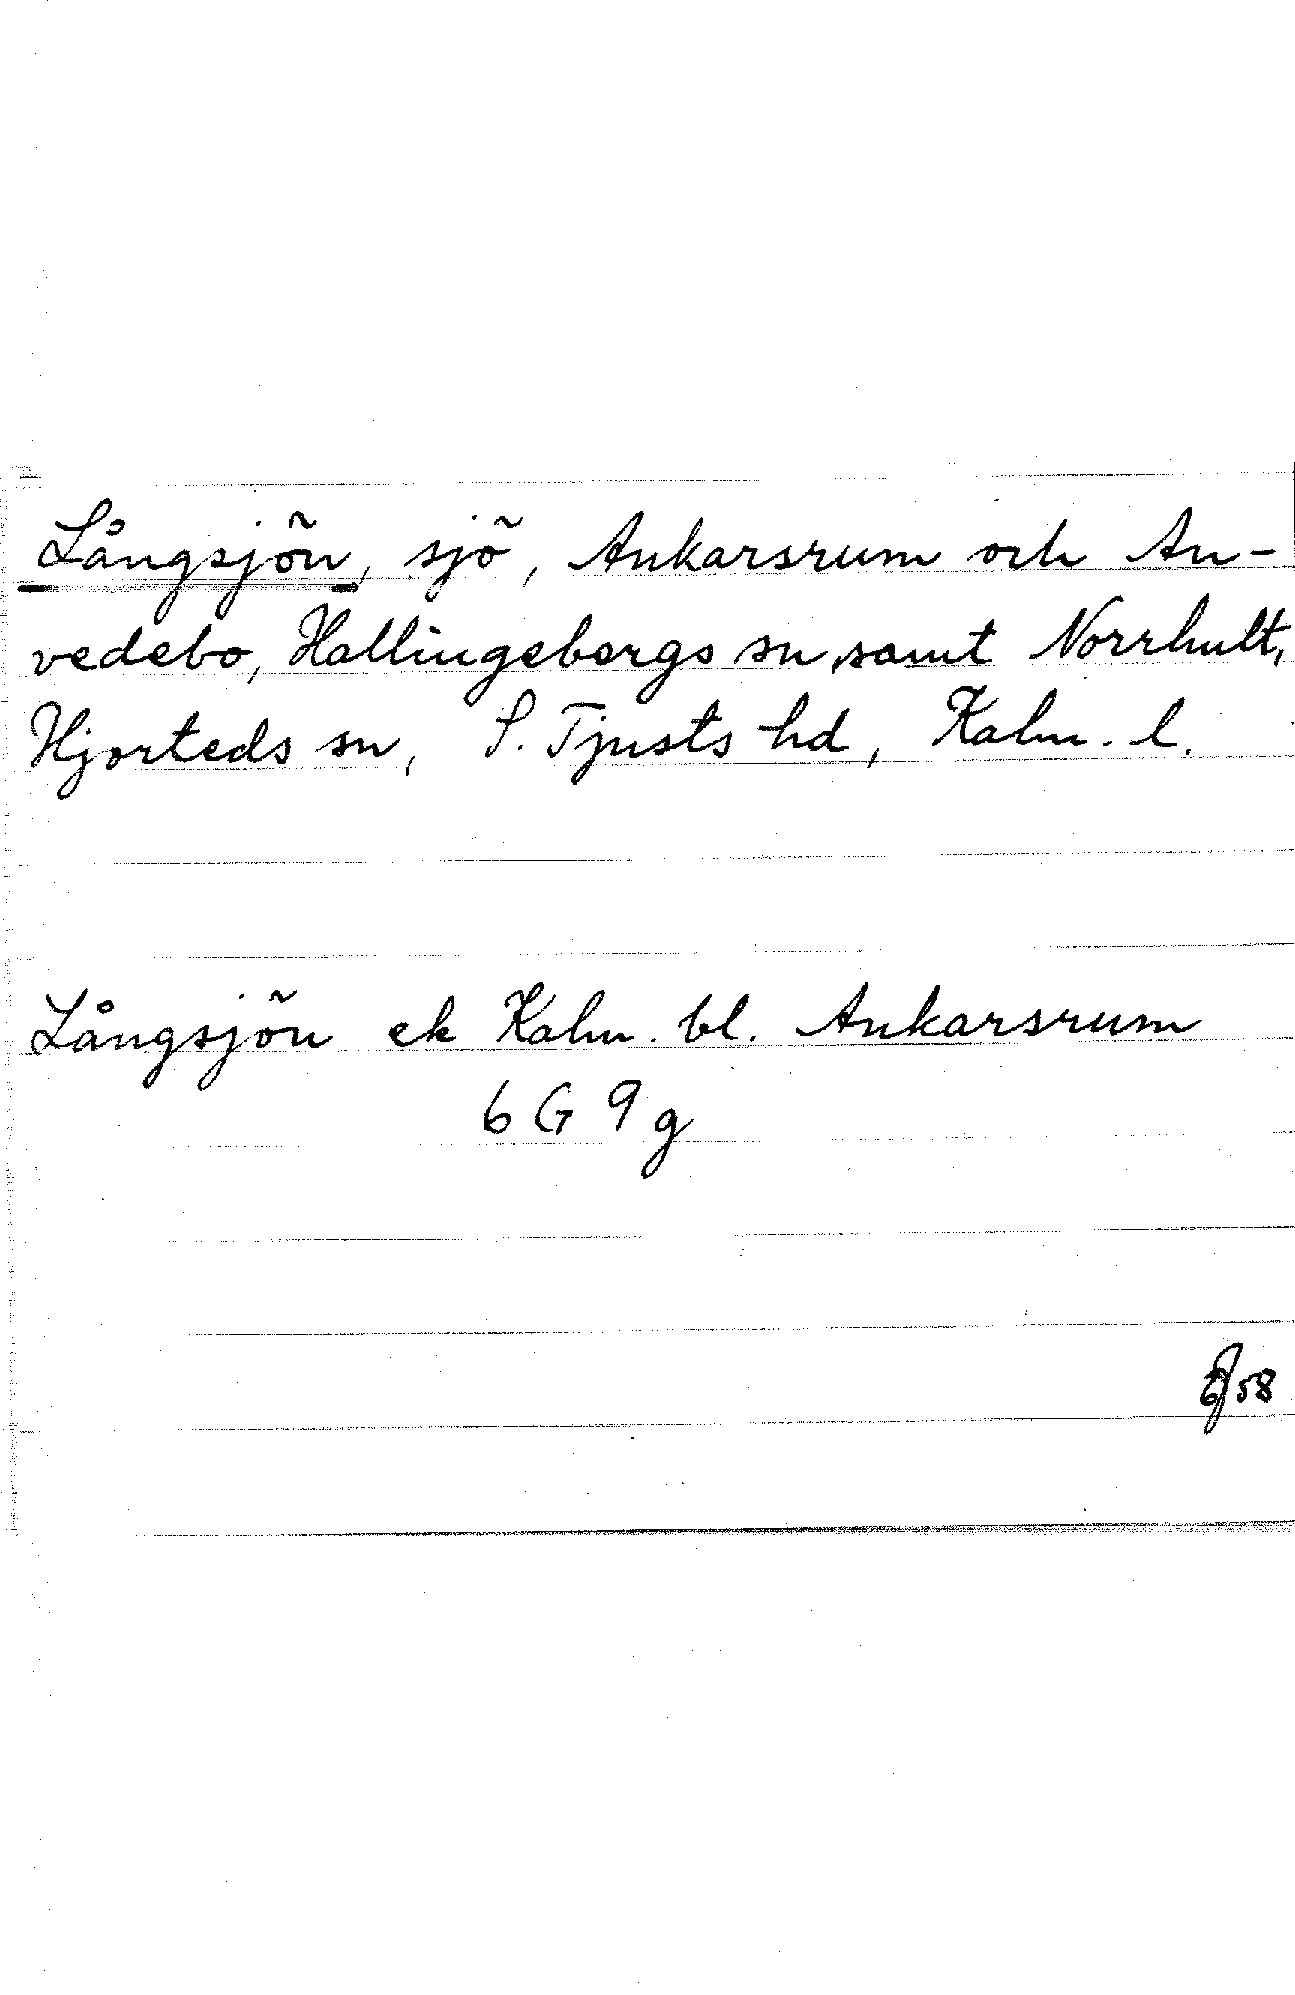 Långsjön, sjö, Ankarsrum och An-
vedebo, Hallingebergs sn, samt Norrhult,
Hjorteds sn, S. Tjusts hd, Kalm. l.
Långsjön ek Kalm. bl. Ankarsrum
6 G 9 g
58